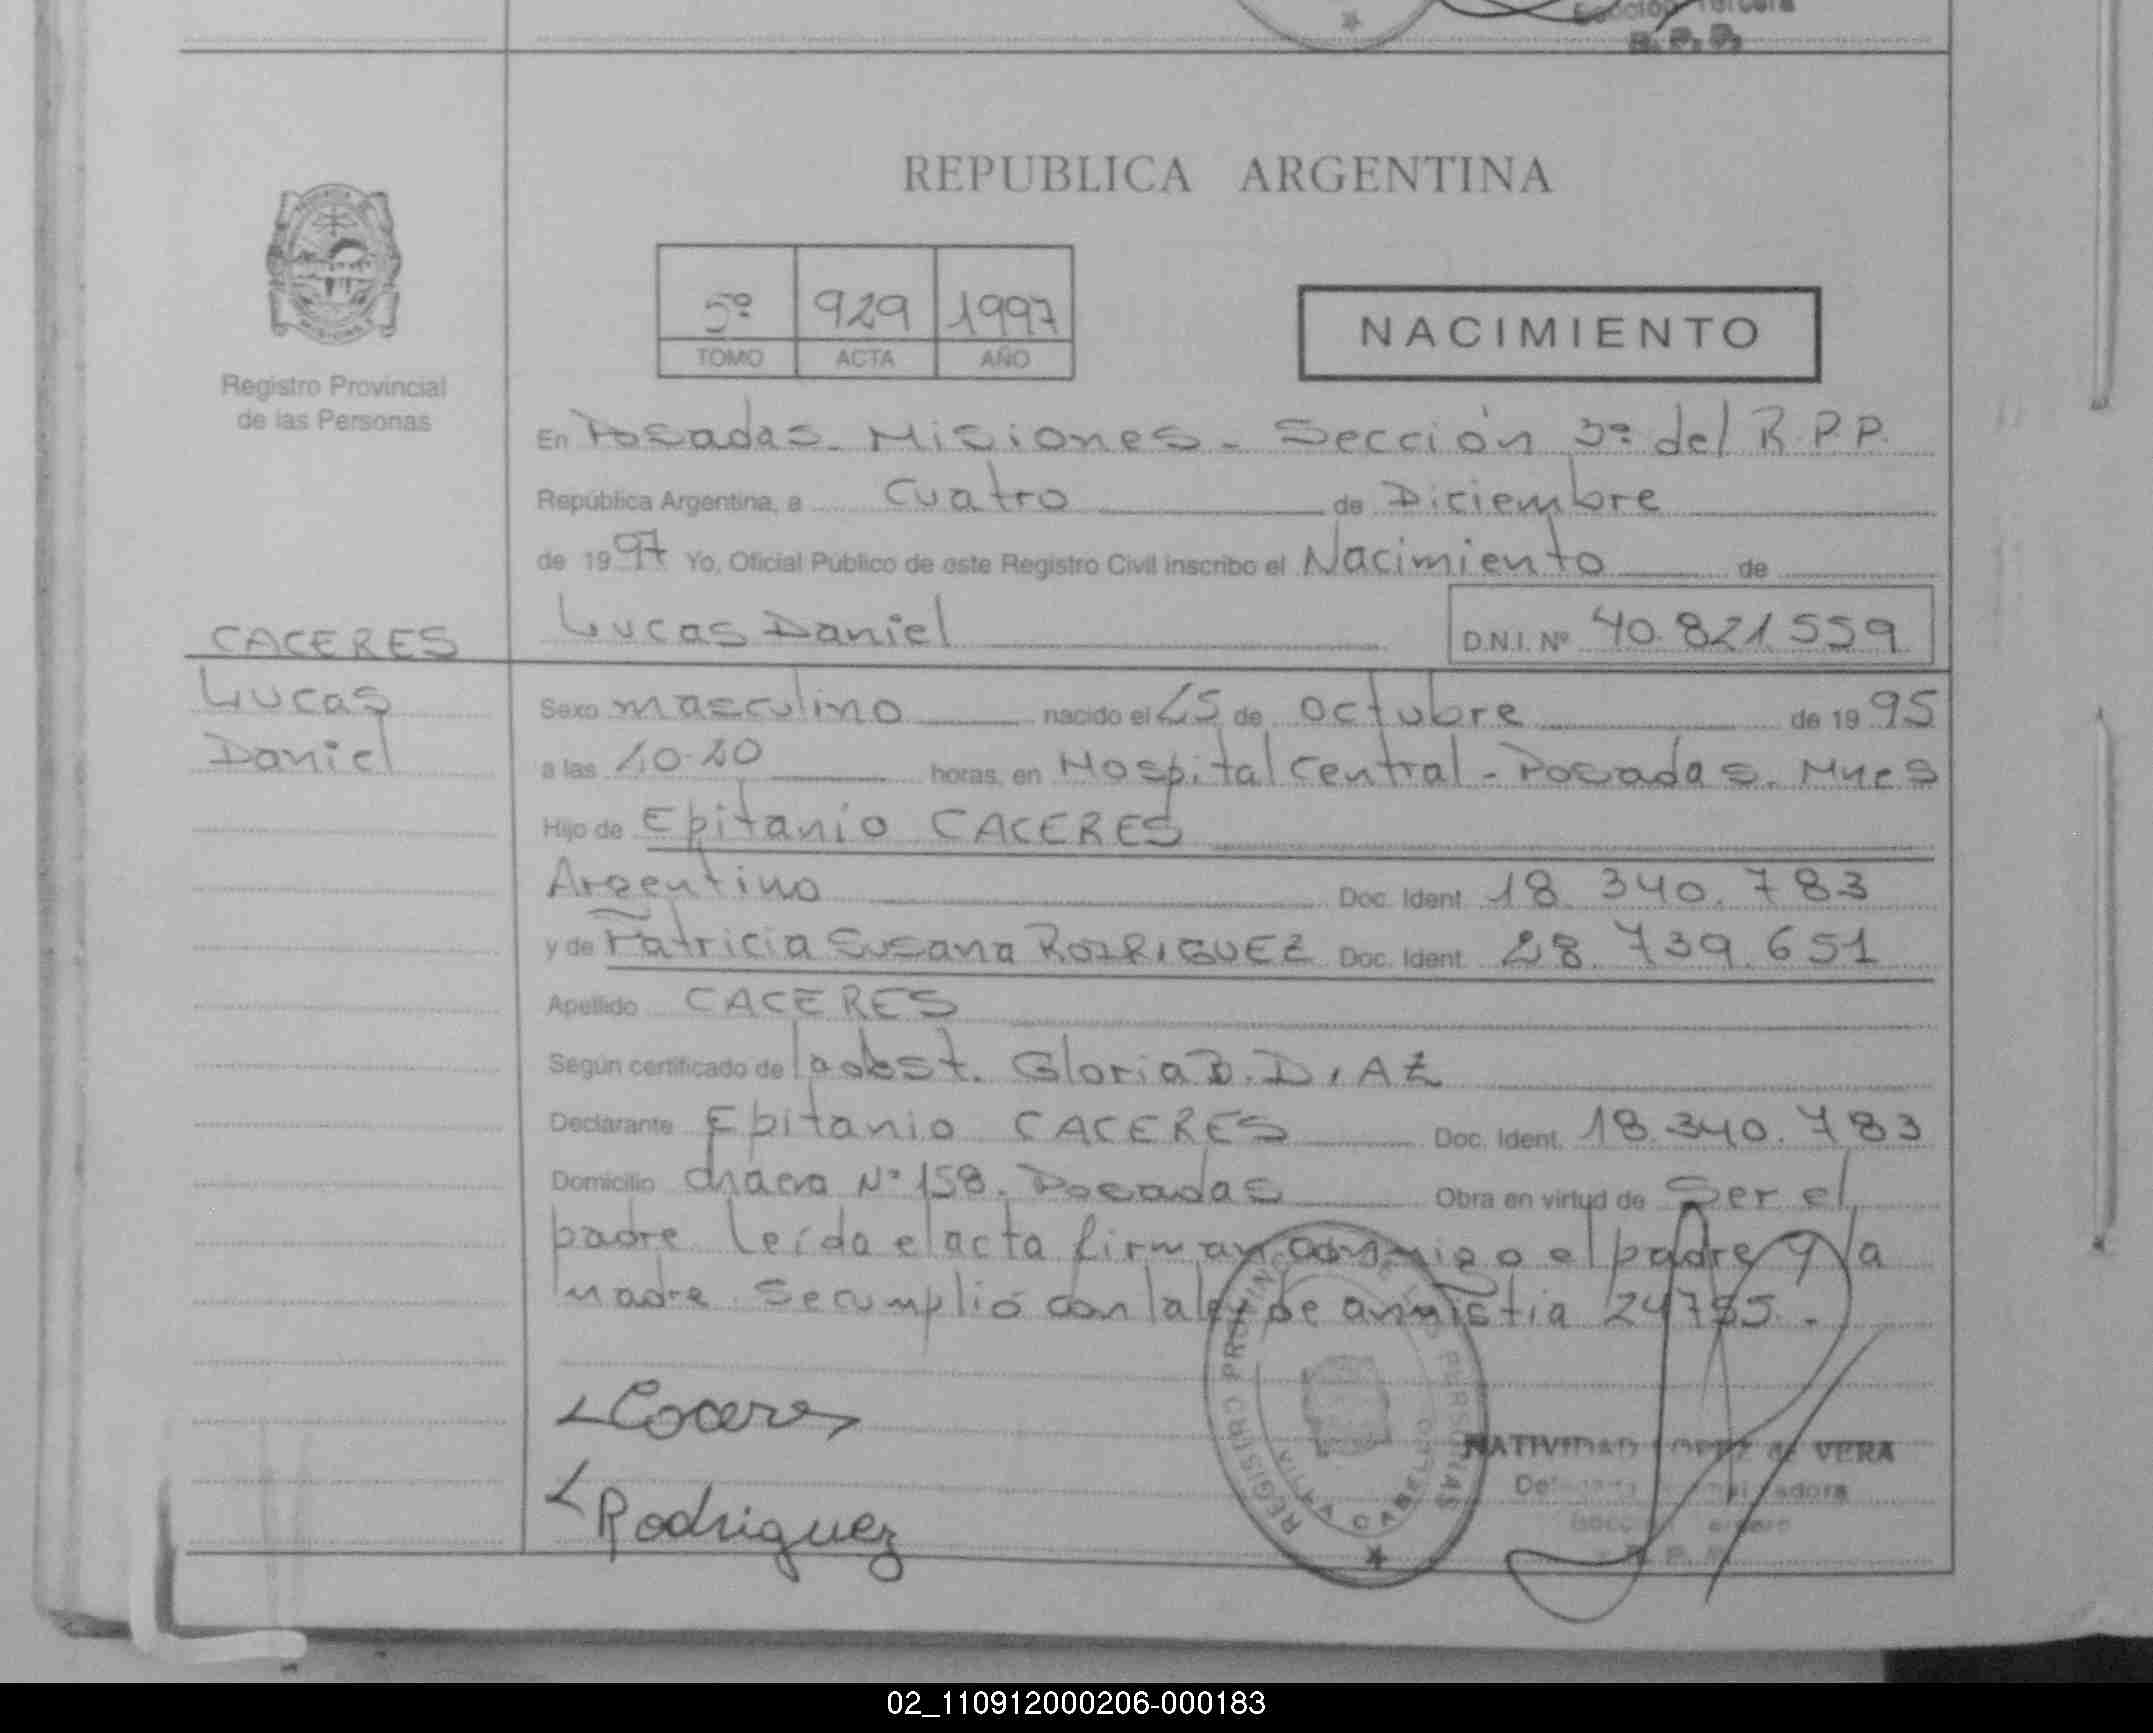 Sección Tercera
R. P. P.
REPUBLICA ARGENTINA
5º 929 1997
TOMO ACTA AÑO
NACIMIENTO
Registro Provincial
de las Personas
En Posadas - Misiones - Sección 3ª del R.P.P.
República Argentina, a Cuatro de Diciembre
de 1997 Yo, Oficial Público de este Registro Civil inscribo el Nacimiento de
CACERES
Lucas
Daniel
Lucas Daniel D.N.I. Nº 40.821.559
Sexo masculino nacido el 25 de octubre de 1995
a las horas, en Hospital Central - Posadas. Mnes
Hijo de Epifanio CACERES
Argentino Doc. Ident. 18.340.783
y de Patricia Susana RODRIGUEZ Doc. Ident. 28.739.651
Apellido CACERES
Según certificado de la obst. Gloria B. DIAZ
Declarante Epifanio CACERES Doc. Ident. 18.340.783
Domicilio chacra Nº 158. Posadas Obra en virtud de Ser el
padre Leída el acta firman conmigo el padre y la
madre. Se cumplió con la ley de amnistia 24755.-
Caceres
Rodriguez
REGISTRO PROVINCIAL DE LAS PERSONAS
NATIVIDAD LOPEZ de VERA
02_110912000206-000183